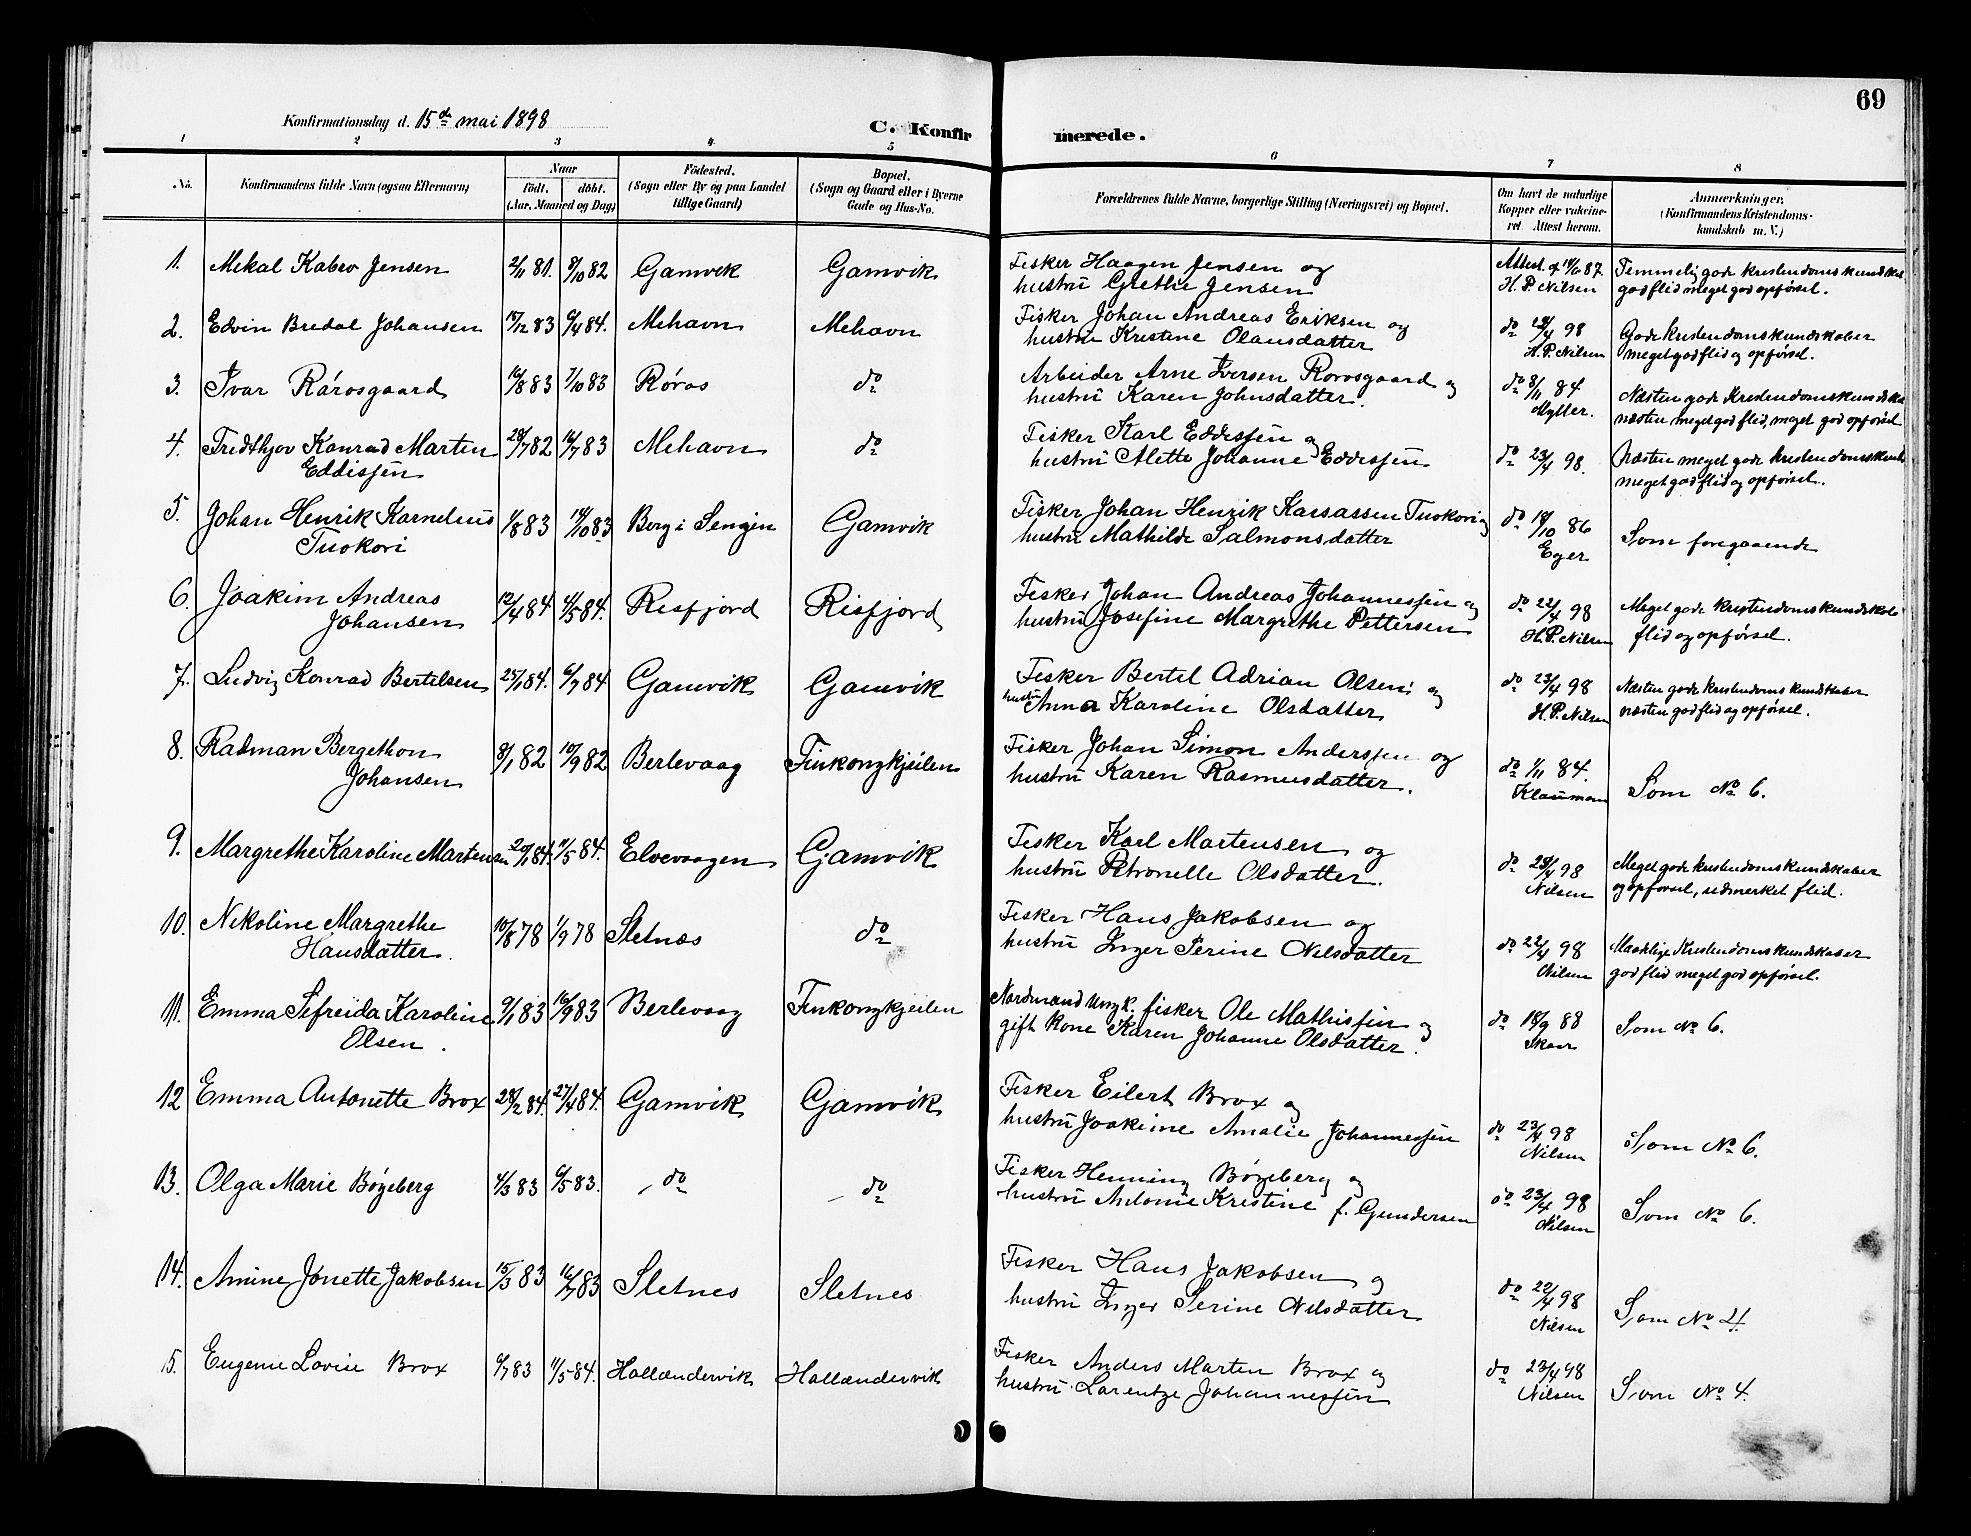 69
Konfirmationsdag d. 15de mai 1898
C. Konfirmerede.
1 2 3 4 5 6 7 8
No. Konfirmandens fulde Navn (ogsaa Efternavn) Naar født. døbt. (Aar, Maaned og Dag) Fødested. (Sogn eller By og paa Landet tillige Gaard) Bopæl. (Sogn og Gaard eller i Byerne Gade og Hus-No. Forældrenes fulde Navne, borgerlige Stilling (Næringsvei) og Bopæl. Om havt de naturlige Kopper eller vaccineret. Attest herom. Anmærkninger. (Konfirmandens Kristendomskundskab m. V.)
1. Mikal Kabev Jensen 2/11 81. 8/10 82 Gamvik Gamvik Fisker Haagen Jensen og
hustru Grethe Jensen
Attest af 87. H. P. Nilsen
Temmelig gode kristendomskundskab
god flid meget god opførsel.
2. Edvin Bredal Johansen 15/12 83 6/4 84. Mehavn Mehavn Fisker Johan Andreas Eriksen og
hustru Kristine Olausdatter
do 98 H. P. Nilsen
Gode kristendomskundskaber
meget god flid og opførsel.
3. Ivar Rørosgaard 16/8 83 7/10 83 Røros do Arbeider Arne Iversen Rorosgaard og
hustru Karen Johnsdatter.
do 8/11 84
Næsten gode Kristendomskundska
næsten meget god flid, meget god opførsel
4. Fredthjov Konrad Martin
Eddissen
29/7 82 16/7 83 Mehavn do Fisker Karl Eddissen og
hustru Alette Johanne Eddissen
do 23/4 98.
Næsten meget gode kristendomskunds
meget god flid og opførsel.
5. Johan Henrik Karnelius
Tuokori
1/8 83 14/10 83 Berg i Senjen Gamvik Fisker Johan Henrik Karsassen Tuokori og
hustru Mathilde Salmonsdatter
do 18/10 86
Eger
Som foregaaende
6. Joakim Andreas
Johansen
12/4 84 4/5 84. Risfjord Risfjord Fisker Johan Andreas Johannessen og
hustru Josefine Margrethe Pettersen
do 22/4 98
H. P. Nilsen
Meget gode kristendomskundskab
flid og opførsel.
7. Ludvig Konrad Bertelsen 25/1 84. 6/7 84 Gamvik Gamvik Fisker Bertel Adrian Olsen og
hustru Anna Karoline Olsdatter
do 23/4 98
H. P. Nilsen
Næsten gode kristendomskundskaber
næsten god flid og opførsel.
8. Radman Bergethon
Johansen
8/1 82 10/9 82 Berlevaag Finkongkjeilen Fisker Johan Simon Anderssen og
hustru Karen Rasmusdatter.
do 1/11 84.
Klaumann
Som No 6.
9. Margrethe Karoline Martensen 20/1 84. 11/5 84. Elvevaagen Gamvik Fisker Karl Martensen og
hustru Petronelle Olsdatter.
do 98
Nilsen
Meget gode kristendomskundskaber
og opførsel, udmerket flid.
10. Nikoline Margrethe
Hansdatter.
10/8 78 1/9 78 Sletnæs do Fisker Hans Jakobsen og
hustru Inger Serine Nilsdatter
do 22/4 98
Nilsen
Maadelige Kristendomskundskaber
god flid meget god opførsel.
11. Emma Sefreida Karoline
Olsen.
9/1 83 16/9 83 Berlevaag Finkongkjeilen Nordmand Ungk. fisker Ole Mathissen og
gift kone Karen Johanne Olsdatter.
do 18/9 88
Skaar
Som No 6.
12 Emma Antonette Brox 28/2 84. 27/4 84. Gamvik Gamvik Fisker Eilert Brox og
hustru Joakime Amalie Johannessen
do 23/4 98
Nilsen
Som No 6.
13. Olga Marie Bøgeberg 4/3 83 6/5 83. do do Fisker Henning Bøgeberg og
hustru Antonie Kristine f. Gundersen
do 23/4 98
Nilsen
Som No 6.
14. Amine Jonette Jakobsen 15/3 83 16/7 83 Sletnes Sletnes Fisker Hans Jakobsen og
hustru Inger Serine Nilsdatter
do 22/4 98
Nilsen
Som No 4.
15. Eugenie Lovise Brox 6/7 83 11/5 84. Hollændervik Hollændervik Fisker Anders Marten Brox og
hustru Larentze Johannessen
do 23/4 98
Nilsen
Som No 4.